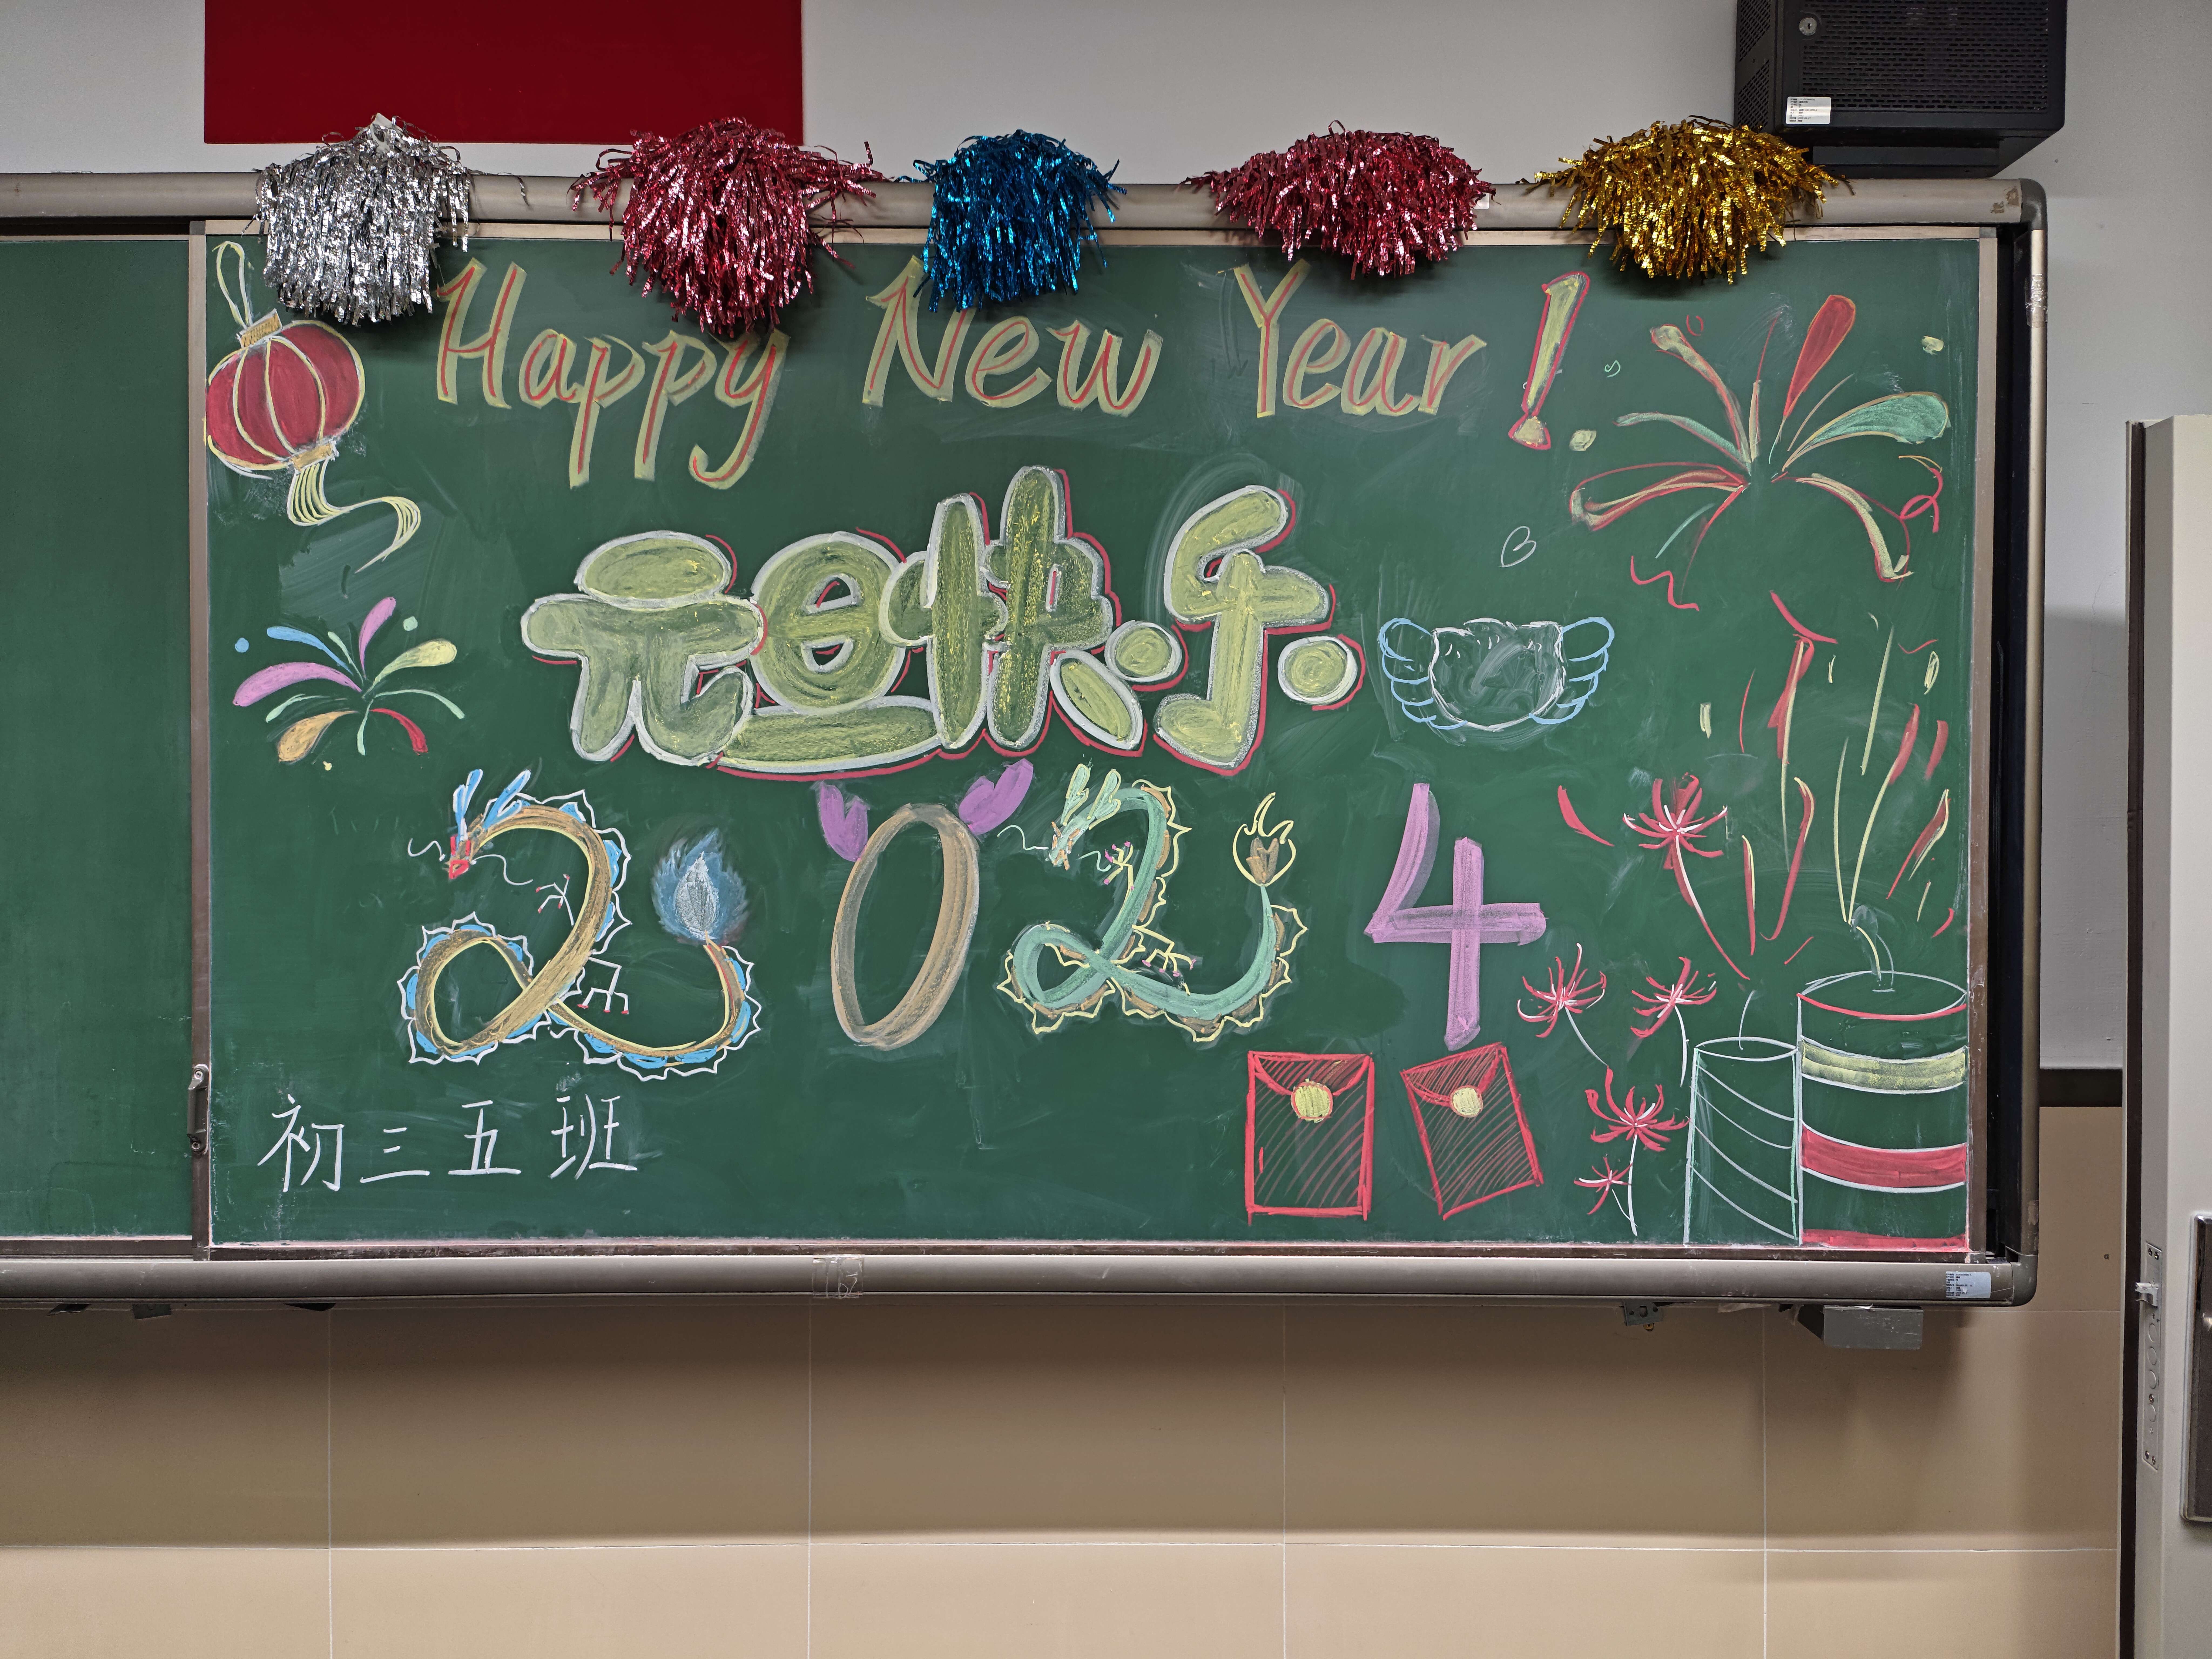 Happy New Year!
元旦快乐
2024
初三五班